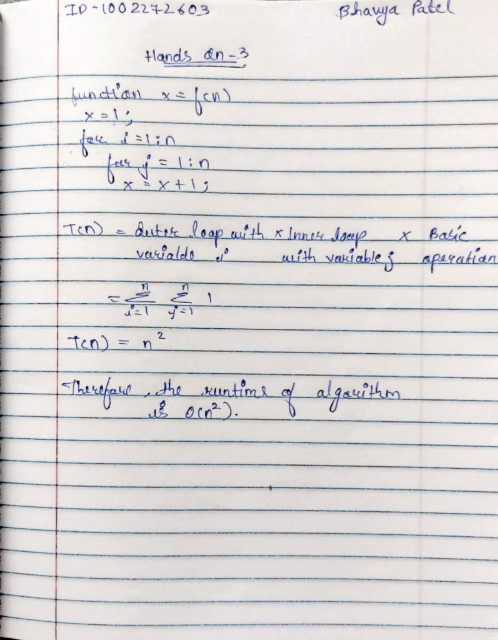 ID-1002272603 Bhavya Patel
Hands on-3
function x = f(n)
x = 1;
for i = 1:n
for j = 1:n
x = x + 1;
T(n) = Outer loop with × Inner loop × Basic
variable i with variable j operation
= n∑i=1 n∑j=1 1
T(n) = n²
Therefore, the runtime of algorithm
is O(n²).